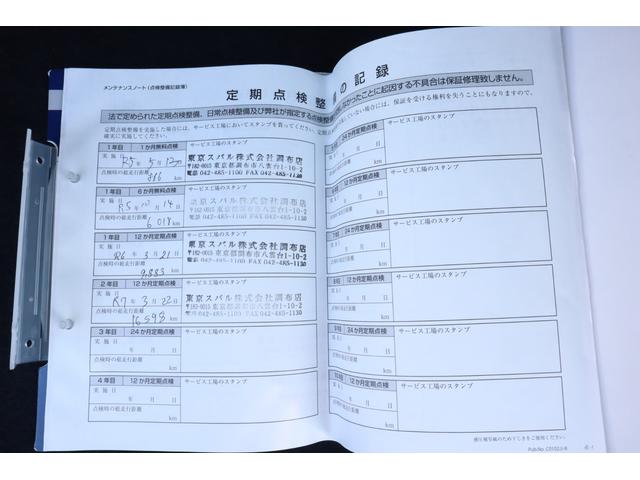 メンテナンスノート(点検整備記録簿)
定期点検整備の記録
法で定められた定期点検整備、日常点検整備及び弊社が指定する点検整備
なかったことに起因する不具合は保証修理致しません。
定期点検整備を実施した場合には、サービス工場においてスタンプを貰ってください。定期
確実に実施してください。
していない場合には、保証を受ける権利を失うことにもなりますので、
1年目 1か月無料点検 サービス工場のスタンプ
実施日 R5年5月13日
点検時の総走行距離 886 km
東京スバル株式会社調布店
〒182-0015 東京都調布市八雲台1-10-2
電話 042-485-1100 FAX 042-485-1130
1年目 6か月無料点検 サービス工場のスタンプ
実施日 R5年10月14日
点検時の総走行距離 6018 km
東京スバル株式会社調布店
〒182-0015 東京都調布市八雲台1-10-2
電話 042-485-1100 FAX 042-485-1130
1年目 12か月定期点検 サービス工場のスタンプ
実施日 R6年3月21日
点検時の総走行距離 9,883 km
東京スバル株式会社調布店
〒182-0015 東京都調布市八雲台1-10-2
電話 042-485-1100 FAX 042-485-1130
2年目 12か月定期点検 サービス工場のスタンプ
実施日 R7年3月22日
点検時の総走行距離 16598 km
東京スバル株式会社調布店
〒182-0015 東京都調布市八雲台1-10-2
電話 042-485-1100 FAX 042-485-1130
3年目 24か月定期点検 サービス工場のスタンプ
実施日 年 月 日
点検時の総走行距離 km
4年目 12か月定期点検 サービス工場のスタンプ
実施日 年 月 日
点検時の総走行距離 km
24か月定期点検 サービス工場のスタンプ
年 月 日
km
12か月定期点検 サービス工場のスタンプ
年 月 日
km
24か月定期点検 サービス工場のスタンプ
年 月 日
km
12か月定期点検 サービス工場のスタンプ
年 月 日
km
24か月定期点検 サービス工場のスタンプ
年 月 日
km
12か月定期点検 サービス工場のスタンプ
年 月 日
km
感圧複写紙のため下じきをご使用ください。
Pub.No. C0102JJ-B